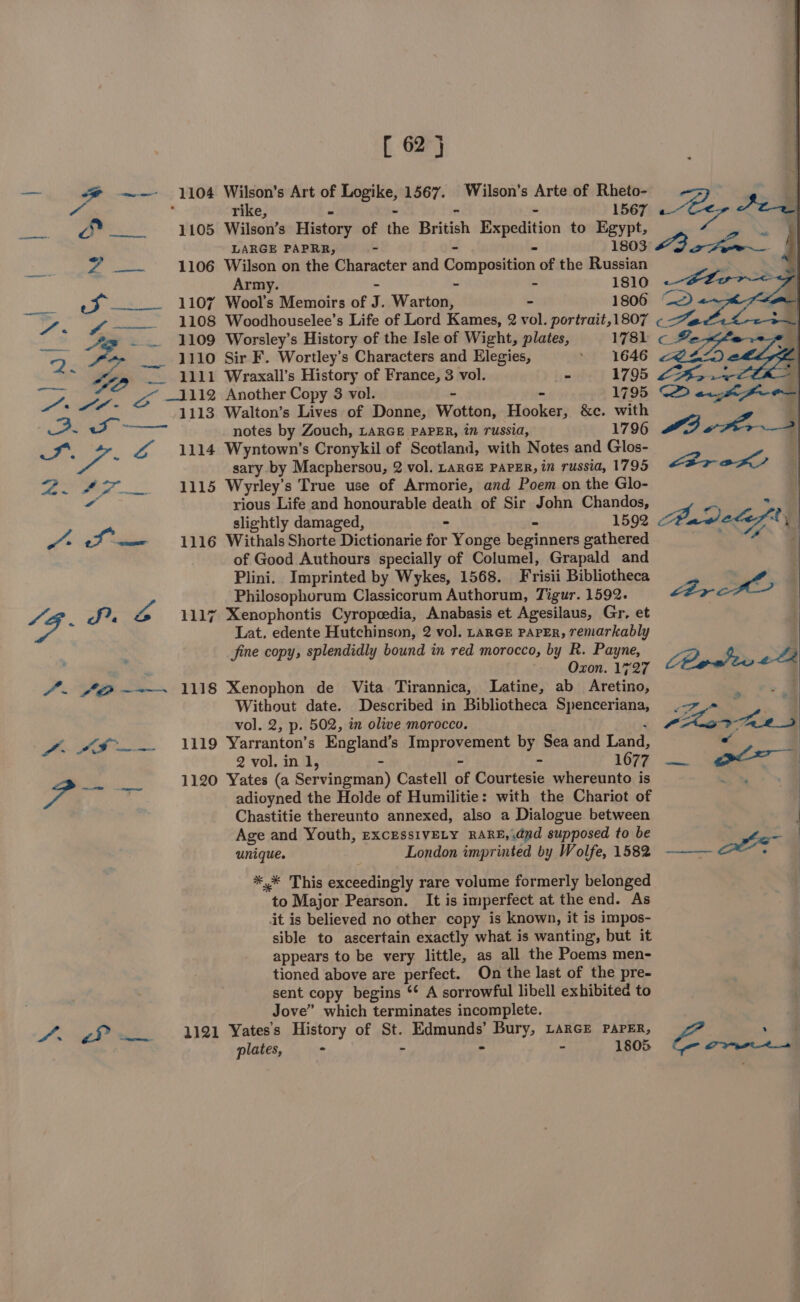 [ 62 ]
1104 Wilson's Art of Logike, 1567. Wilson's Arte of Rheto-
rike, - - - - 1567
1105 Wilson's History of the British Expedition to Egypt,
LARGE PAPRR, - - - 1803
1106 Wilson on the Character and Composition of the Russian
Army. - - - 1810
5 1107 Wool's Memoirs of J. Warton, - 1806
1108 Woodhouselee's Life of Lord Kames, 2 vol. portrait, 1807
1109 Worsley's History of the Isle of Wight, plates, 1781
1110 Sir F. Wortley's Characters and Elegies, - 1646
1111 Wraxall's History of France, 3 vol. - 1795
1112 Another Copy 3 vol. - - 1795
1113 Walton's Lives of Donne, Wotton, Hooker, &c. with
3. 5 notes by Zouch, LARGE PAPER, in russia, 1796
5. 7. 6 1114 Wyntown's Cronykil of Scotland, with Notes and Glos-
sary by Macphersou, 2 vol. LARGE PAPER, in russia, 1795
2. 17 1115 Wyrley's True use of Armorie, and Poem on the Glo-
rious Life and honourable death of Sir John Chandos,
slightly damaged, - - 1592
1. 5 1116 Withals Shorte Dictionarie for Yonge beginners gathered
of Good Authours specially of Columel, Grapald and
Plini. Imprinted by Wykes, 1568. Frisii Bibliotheca
Philosophorum Classicorum Authorum, Tigur. 1592.
1117 Xenophontis Cyropœdia, Anabasis et Agesilaus, Gr. et
Lat. edente Hutchinson, 2 vol. LARGE PAPER, remarkably
fine copy, splendidly bound in red morocco, by R. Payne,
Oxon. 1727
1. 10 1118 Xenophon de Vita Tirannica, Latine, ab Aretino,
Without date. Described in Bibliotheca Spenceriana,
vol. 2, p. 502, in olive morocco. -
1119 Yarranton's England's Improvement by Sea and Land,
2 vol. in 1, - - - 1677
1120 Yates (a Servingman) Castell of Courtesie whereunto is
adioyned the Holde of Humilitie: with the Chariot of
Chastitie thereunto annexed, also a Dialogue between
Age and Youth, EXCESSIVELY RARE, and supposed to be
unique. London imprinted by Wolfe, 1582
*⁎* This exceedingly rare volume formerly belonged
to Major Pearson. It is imperfect at the end. As
it is believed no other copy is known, it is impos-
sible to ascertain exactly what is wanting, but it
appears to be very little, as all the Poems men-
tioned above are perfect. On the last of the pre-
sent copy begins “ A sorrowful libell exhibited to
Jove” which terminates incomplete.
1121 Yates's History of St. Edmunds' Bury, LARGE PAPER,
plates, - - - - 1805